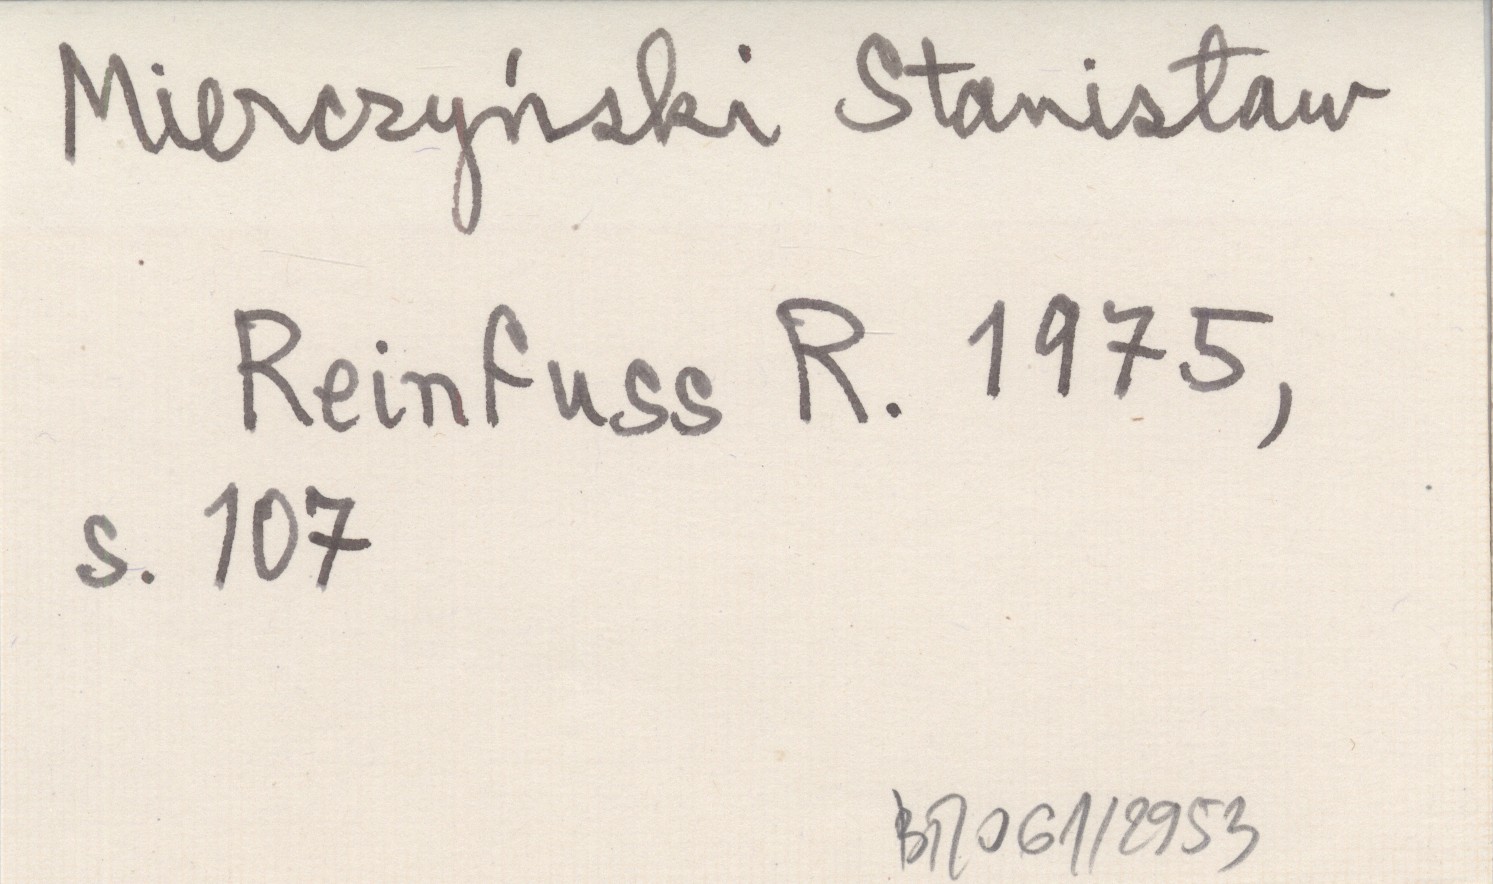 Mierczyński Stanisław
Reinfuss R. 1975,
s. 107